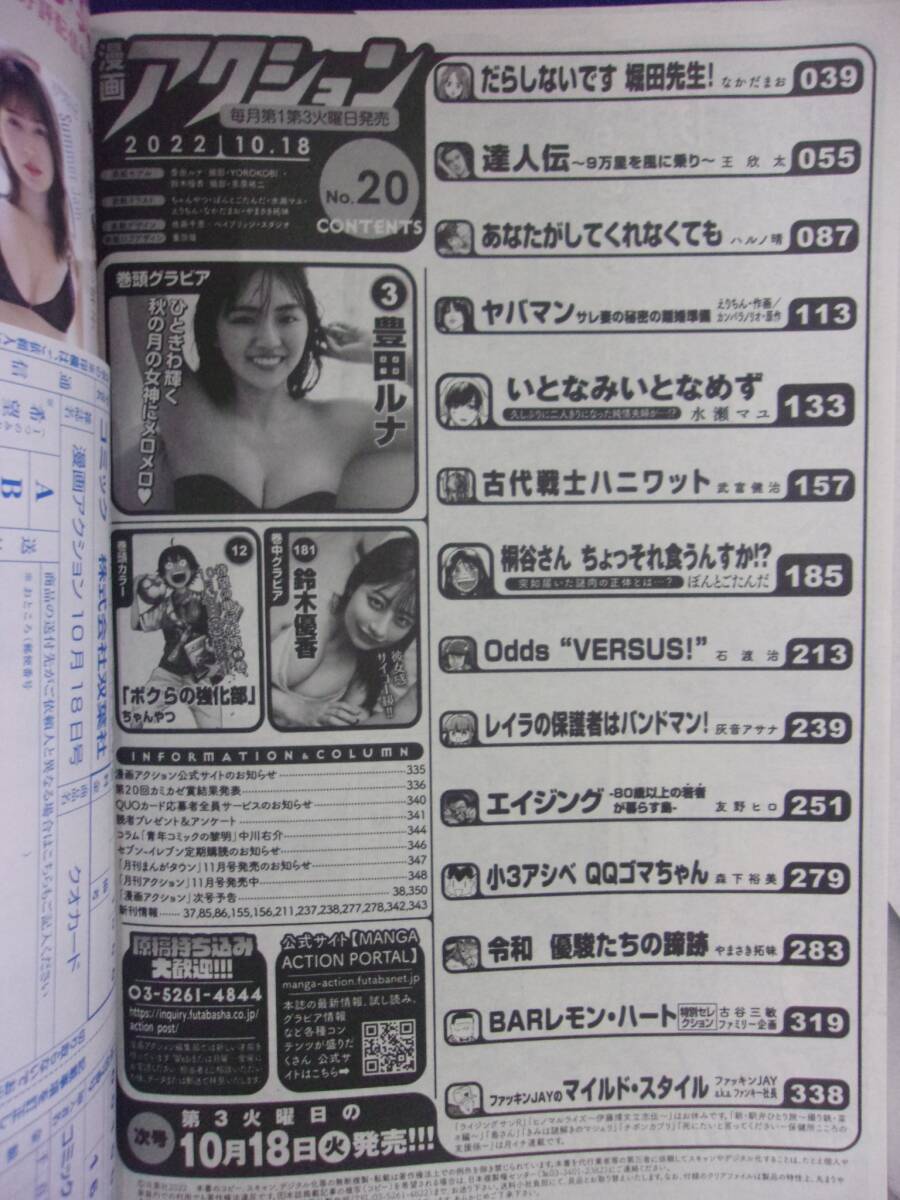 漫画
アクション
毎月第1第3火曜日発売
2022 10.18
No.20
CONTENTS
巻頭グラビア
3 豊田ルナ
ひときわ輝く
秋の月の女神にメロメロ♥
巻頭カラー
12
「ボクらの強化部」
ちゃんやつ
巻中グラビア
181
鈴木優香
INFORMATION & COLUMN
漫画アクション公式サイトのお知らせ 335
第20回カミカゼ賞結果発表 336
QUOカード応募者全員サービスのお知らせ 340
読者プレゼント&アンケート 341
コラム「青年コミックの黎明」中川右介 344
セブン-イレブン定期購読のお知らせ 346
「月刊まんがタウン」11月号発売のお知らせ 347
「月刊アクション」11月号発売中 348
「漫画アクション」次号予告 38,350
新刊情報 37,85,86,155,156,211,237,238,277,278,342,343
原稿持ち込み
大歓迎!!!
03-5261-4844
https://inquiry.futabasha.co.jp/
action_post/
公式サイト【MANGA
ACTION PORTAL】
manga-action.futabanet.jp
本誌の最新情報、試し読み、
グラビア情報
など各種コン
テンツが盛りだ
くさん 公式サ
イトはこちら➡
次号
第3火曜日の
10月18日(火)発売!!!
だらしないです 堀田先生! なかだまお 039
達人伝 〜9万里を風に乗り〜 王欣太 055
あなたがしてくれなくても ハルノ晴 087
ヤバマン サレ妻の秘密の離婚準備 えりちん・作画/カンバラノリオ・原作 113
いとなみいとなめず
久しぶりに二人きりになった純情夫婦が…!? 水瀬マユ 133
古代戦士ハニワット 武富健治 157
桐谷さん ちょっそれ食うんすか!?
突如届いた謎肉の正体とは…? ぽんとごたんだ 185
Odds “VERSUS!” 石渡治 213
レイラの保護者はバンドマン! 灰音アサナ 239
エイジング -80歳以上の若者が暮らす島- 友野ヒロ 251
小3アシベ QQゴマちゃん 森下裕美 279
令和 優駿たちの蹄跡 やまさき拓味 283
BARレモン・ハート 特別セレクション 古谷三敏 ファミリー企画 319
ファッキンJAYのマイルド・スタイル ファッキンJAY a.k.a. ファンキー社長 338
コミック 株式会社双葉社
漫画アクション 10月18日号
クオカード
商品の送付先がご依頼人と異なる場合はこちらにご記入ください
※おところ(郵便番号
通信
希望
A
B